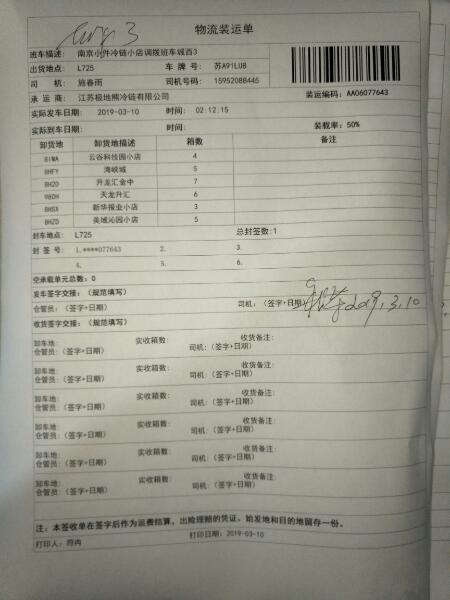 物流装运单
班车描述: 南京小件冷链小店调拨班车城西3
出货地点: L725 车 牌 号: 苏A91LU8
司 机: 施春雨 司机号码: 15952088445
承 运 商: 江苏极地熊冷链有限公司 装运编码: AA06077643
实际发车日期: 2019-03-10 时间: 02:12:15
实际到车日期: 时间: 装载率: 50%
卸货地 卸货地描述 箱数 备注
8IWA 云谷科技园小店 4
8HFY 湾峡城 5
8HZD 升龙汇金中 7
9BDH 天龙升汇 6
8HSX 新华报业小店 3
8HZD 美域沁园小店 5
封车地点: L725 总封签数:1
封 签 号: 1.****077643 2. 3.
4. 5. 6.
空承载单元总数: 0
发车签字交接: (规范填写)
仓管员: (签字+日期) 司机: (签字+日期) 2019.3.10
收货签字交接: (规范填写)
卸车地: 实收箱数: 收货备注:
仓管员: (签字+日期) 司机: (签字+日期)
卸车地: 实收箱数: 收货备注:
仓管员: (签字+日期) 司机: (签字+日期)
卸车地: 实收箱数: 收货备注:
仓管员: (签字+日期) 司机: (签字+日期)
卸车地: 实收箱数: 收货备注:
仓管员: (签字+日期) 司机: (签字+日期)
卸车地: 实收箱数: 收货备注:
仓管员: (签字+日期) 司机: (签字+日期)
卸车地: 实收箱数: 收货备注:
仓管员: (签字+日期) 司机: (签字+日期)
注: 本签收单在签字后作为运费结算, 出险理赔的凭证, 始发地和目的地留存一份。
打印人: 符冉 打印日期: 2019-03-10